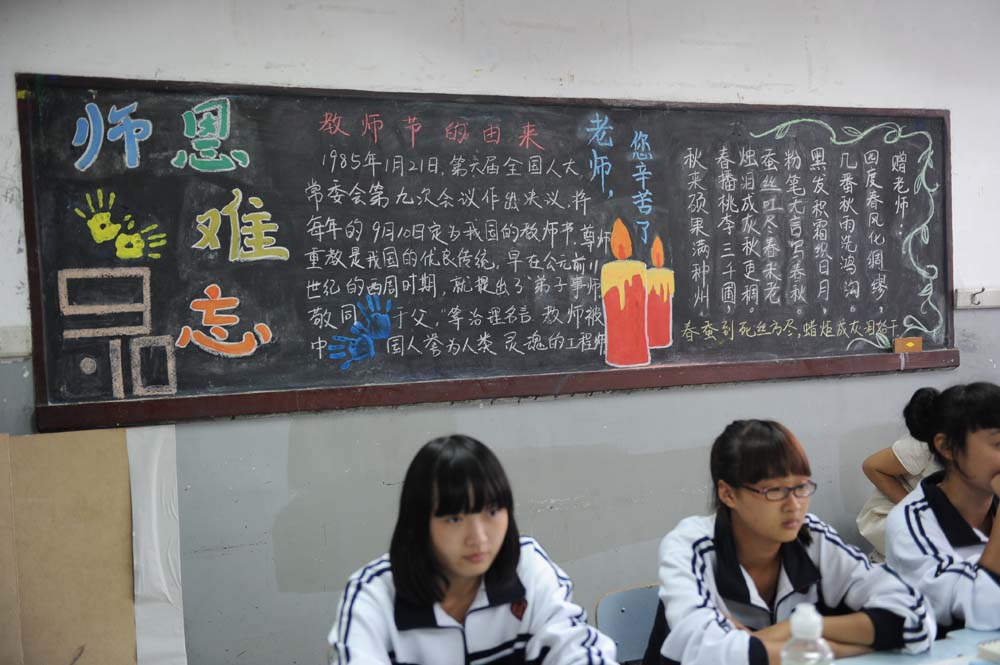 师恩难忘
教师节的由来
1985年1月21日,第六届全国人大
常委会第九次会议作出决议,将
每年的9月10日定为我国的教师节.尊师
重教是我国的优良传统,早在公元前11
世纪的西周时期,就提出了"弟子事师
敬同于父,"等治理名言.教师被
中国人誉为人类灵魂的工程师
老师,
您辛苦了
赠老师:
四度春风化绸缪,
几番秋雨洗鸿沟。
黑发积霜织日月,
粉笔无言写春秋。
蚕丝吐尽春未老,
烛泪成灰秋更稠。
春播桃李三千圃,
秋来硕果满神州.
春蚕到死丝方尽,蜡炬成灰泪始干.